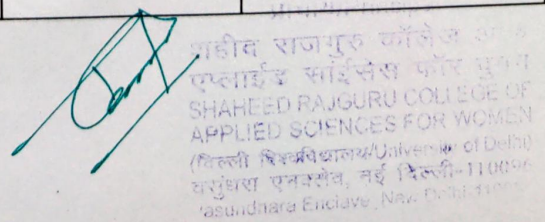 शहीद राजगुरु कॉलेज
एप्लाईड साईंसेस फॉर
SHAHEED RAJGURU COLLEGE OF
APPLIED SCIENCES FOR WOMEN
(दिल्ली विश्वविद्यालय/University of Delhi)
वसुंधरा एनक्लेव, नई दिल्ली-110096
Enclave, New Delhi